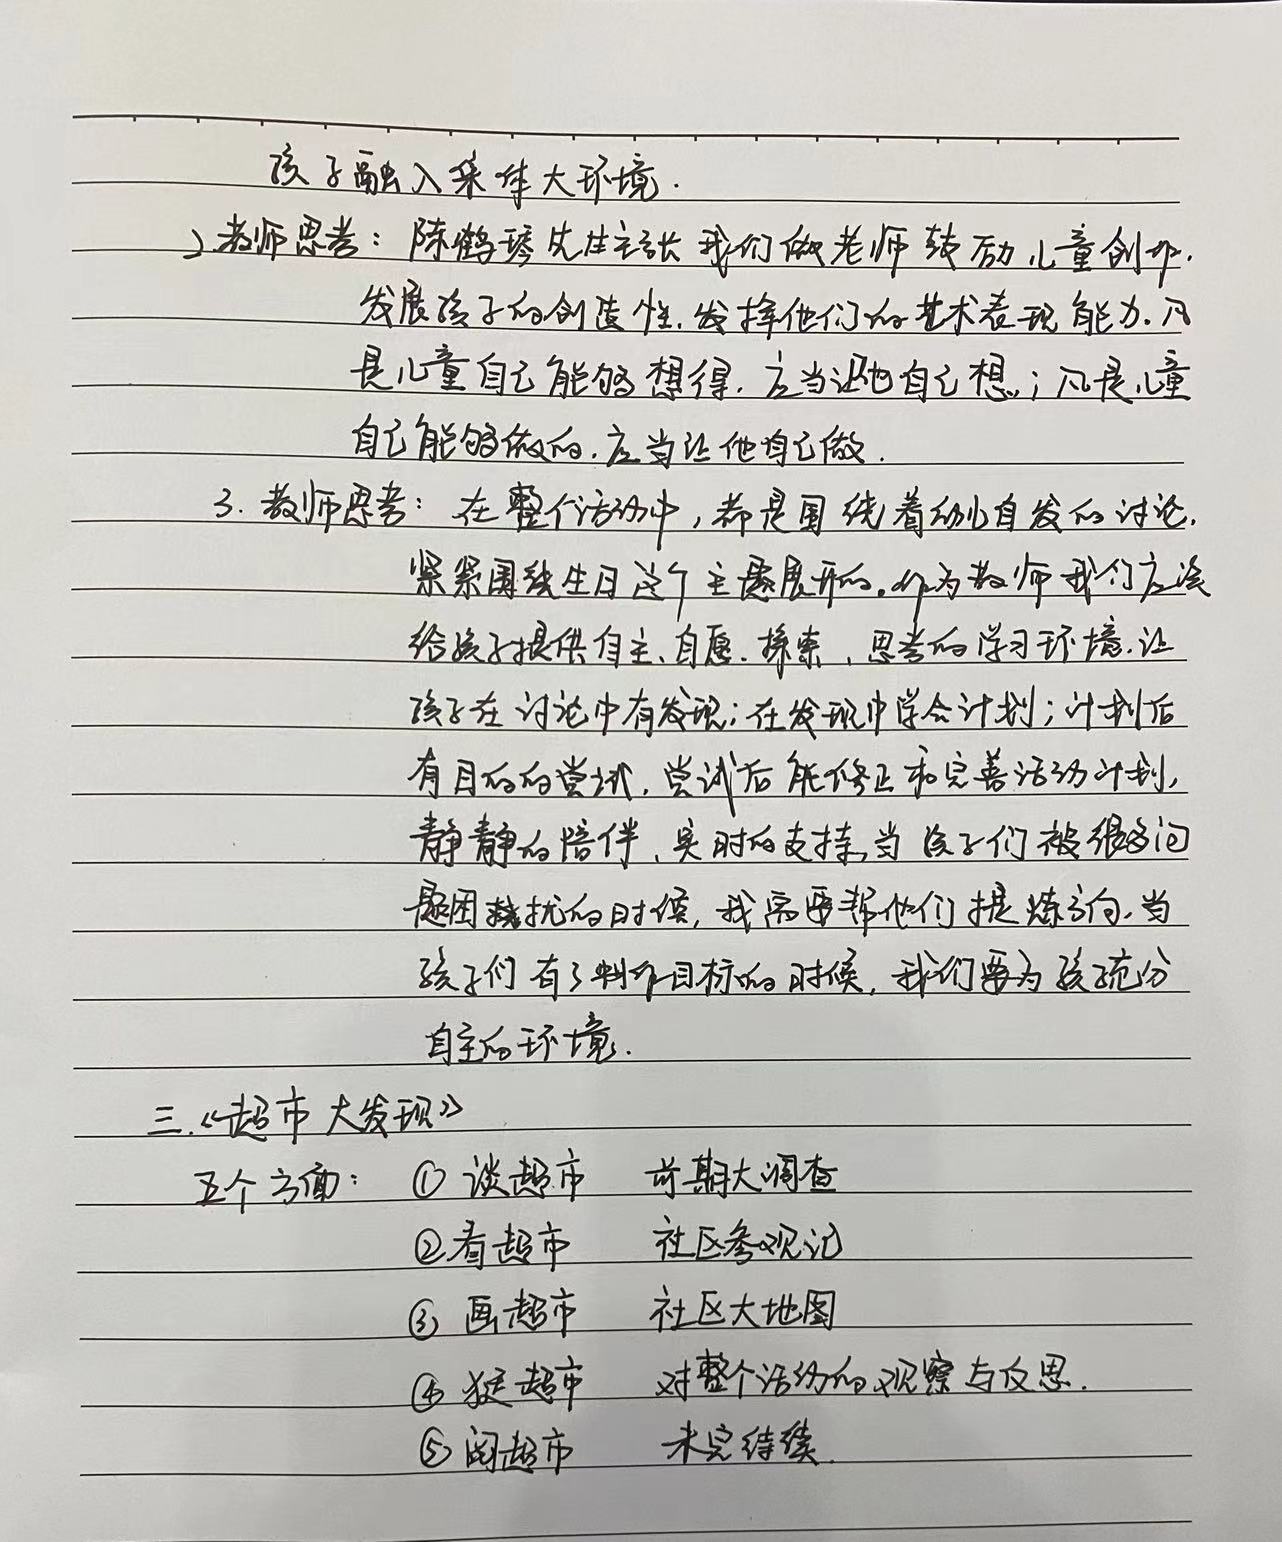 孩子融入集体大环境.
2.教师思考：陈鹤琴先生主张我们做老师鼓励儿童创作.
发展孩子的创造性.发挥他们的艺术表现能力.凡
是儿童自己能够想得.应当让他自己想；凡是儿童
自己能够做的.应当让他自己做.
3.教师思考：在整个活动中，都是围绕着幼儿自发的讨论.
紧紧围绕生日这个主题展开的。作为教师我们应该
给孩子提供自主、自愿.探索、思考的学习环境.让
孩子在讨论中有发现；在发现中学会计划；计划后
有目的的尝试.尝试后能修正和完善活动计划，
静静的陪伴、实时的支持，当孩子们被很多问
题困扰的时候，我需要帮他们提炼方向.当
孩子们有了制作目标的时候，我们要为孩子充分
自主的环境.
三.《超市大发现》
五个方面：①谈超市 前期大调查
②看超市 社区参观记
③画超市 社区大地图
④ 超市 对整个活动的观察与反思.
⑤ 超市 未完待续.